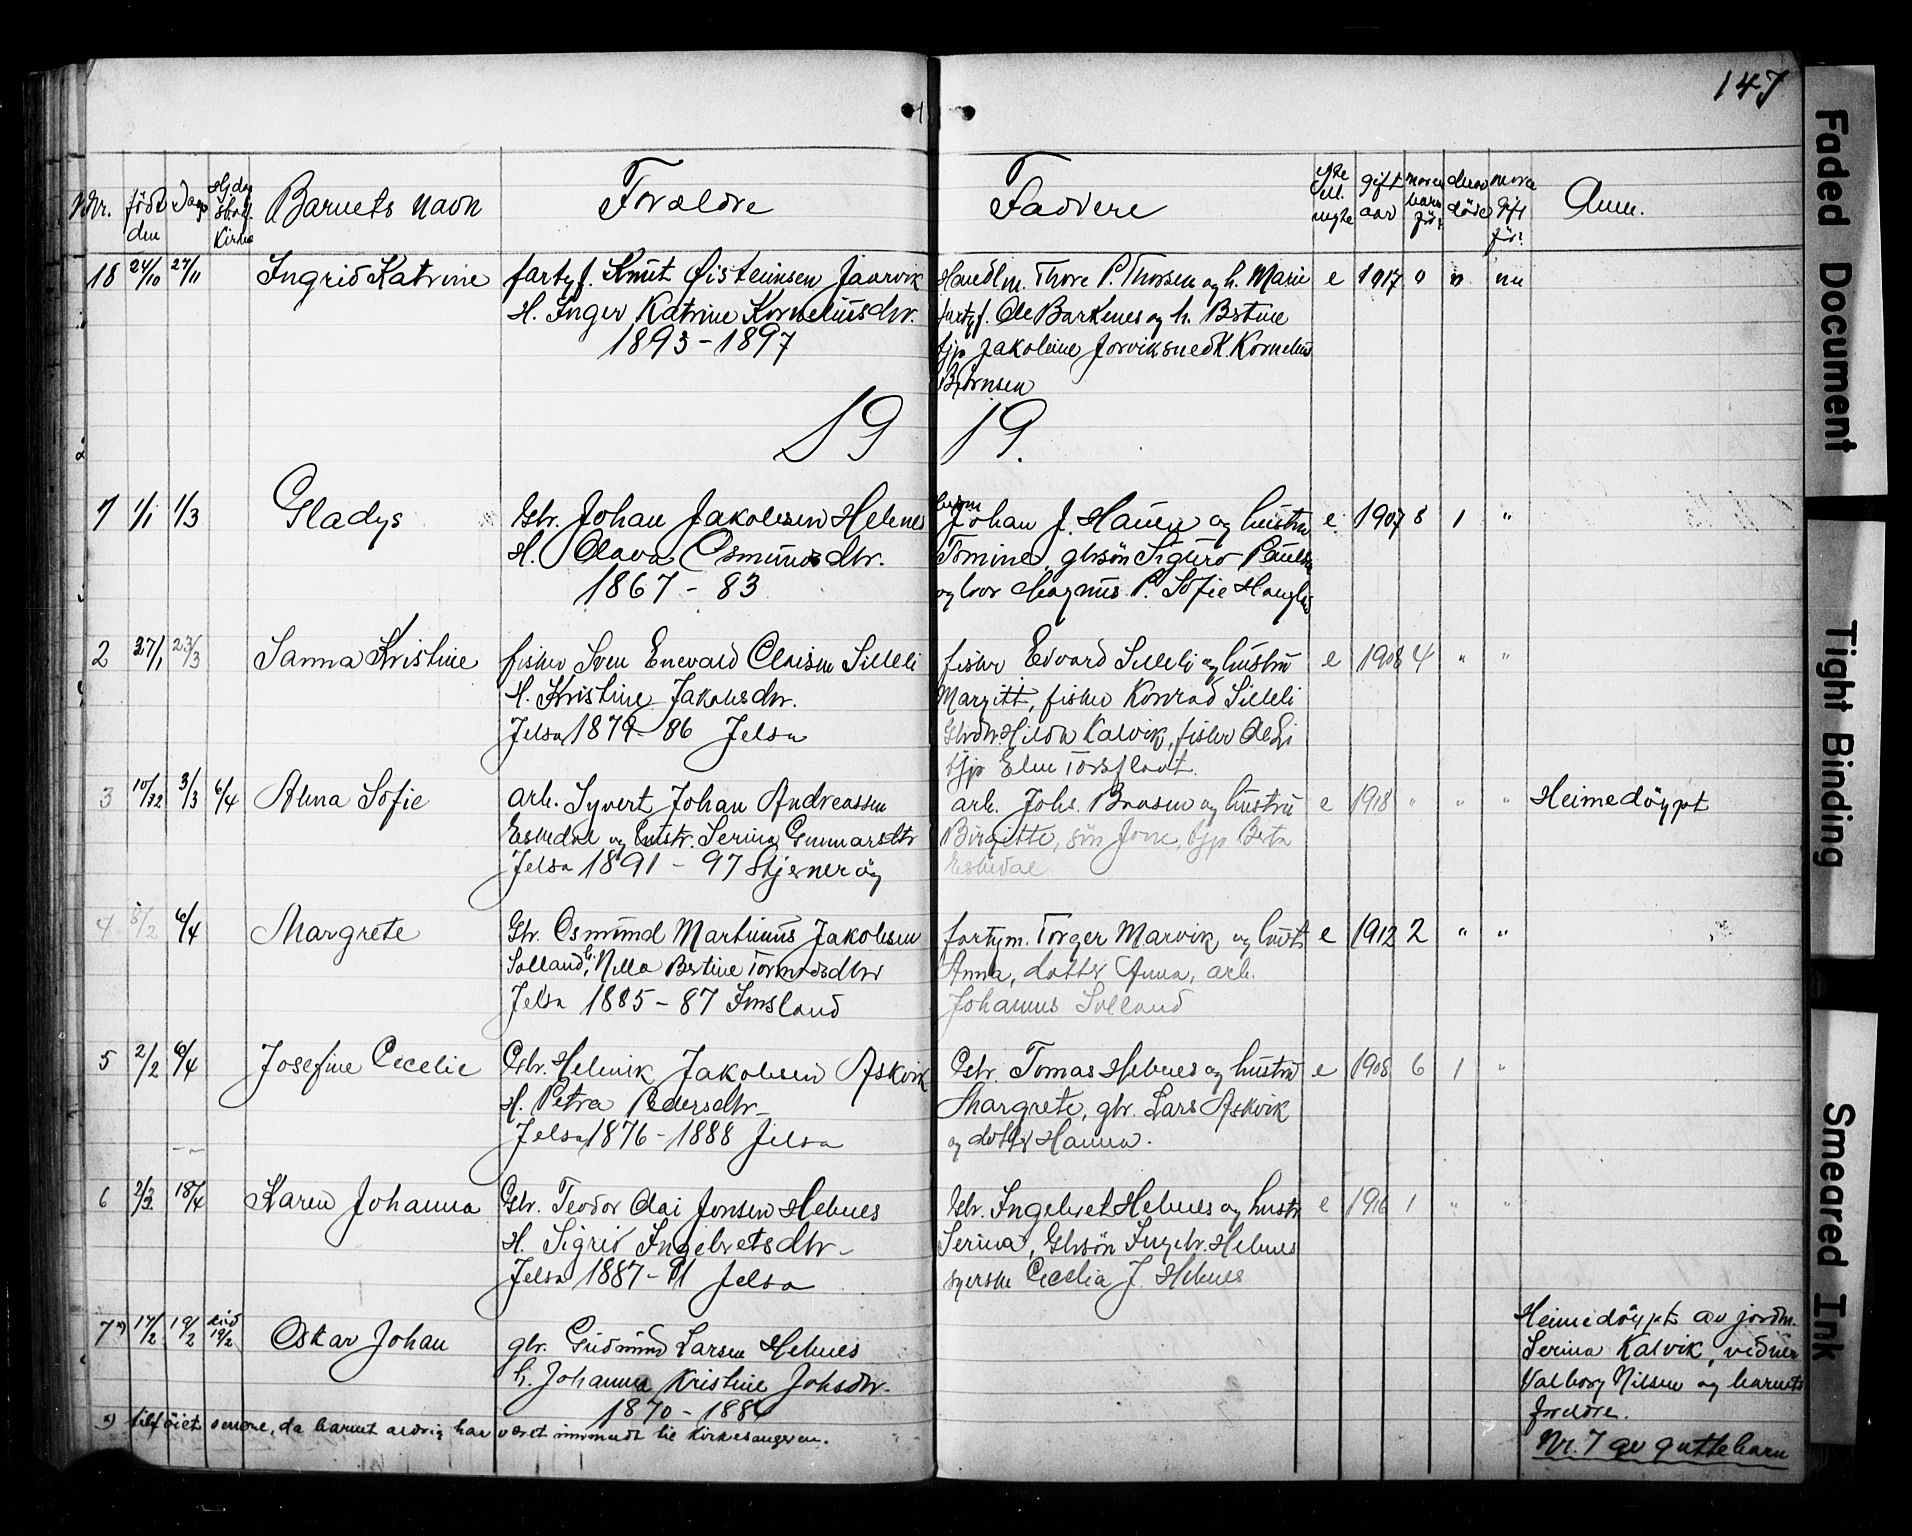 147
Nr. født den Daap Hjdøp stadf. Kirke Barnets navn Forældre Faddere gift aar Anm.
18 24/10 27/11 Ingrid Katrine fartøjf. Knut Øisteinsen Jaarvik Handlm. Thore P. Thorsen og h. Marie e 1917 0 0 nu
H. Inger Katrine Korneliusdtr. fartøjf. Ole Barkenes og h. Bertine
1893 - 1897 tjp Jakoline Jorvik Kornelius
Bjørnsen
19 19.
1 1/1 1/3 Gladys Gbr. Johan Jakobsen Hebnes Johan J. Hauen og hustru e 1907 8 1 "
H. Olava Osmundsdtr. Tomine, gbrsön Sigurd Paulsen
1867 - 83 og bror Magnus P. Sofie Hauglid
2 27/1 23/3 Sanna Kristine fisker Sven Enevald Claisen Silleli fisker Edvard Silleli og hustru e 1908 4 " "
H. Kristine Jakobsdtr. Margitt, fisker Konrad Silleli
Jelsa 1879 - 86 Jelsa Gbrdtr. Hilda Kalvik, fisker Ole Li
tjp Elen Torsflaat.
3 10/12 3/3 6/4 Alma Sofie arb. Syvert Johan Andreassen arb. Johs. Braasen og hustru e 1918 " " " Heimedöypt
Eskedal og hustr. Serina Gunnarsdtr Birgitte, sön Jone, tjp Berta
Jelsa 1891 - 97 Stjerneröy Eskedal
4 6/4 Margrete Gbr. Osmund Martinus Jakobsen fartym. Torger Marvik og hust e 1912 2 " "
Solland, h. Nilla Bertine Tormodsdtr Anna, dotter Anna, arb.
Jelsa 1885 - 87 Imsland Johannes Solland
5 2/2 6/4 Josefine Cecelie Gbr. Helmik Jakobsen Askvik Gbr. Tomas Hebnes og hustru e 1908 6 1 "
H. Petra Pedersdtr. Margrete, gbr. Lars Askvik
Jelsa 1876 - 1888 Jelsa og dotter Hanna.
6 2/3 18/4 Karen Johanna Gbr. Teodor Olai Jonsen Hebnes Gbr. Ingebret Hebnes og hustr e 1916 1 " "
H. Sigrid Ingebretsdtr Serina, Gbrsön Ingebr. Hebnes
Jelsa 1887 - 91 Jelsa syerske Cecelia J. Hebnes
7x) 17/2 19/2 død 19/2 Oskar Johan gbr. Gudmund Larsen Hebnes Heimedöypt av jordm.
h. Johanna Kristine Johsdtr. Serina Kalvik, vidner
1870 - 1884 Valborg Nilsen og barnets
foreldre.
x) tilföiet senere, da barnet aldrig har været innmeldt til Kirkesangeren. Nr. 7 av guttebarn
Faded Document
Tight Binding
Smeared Ink